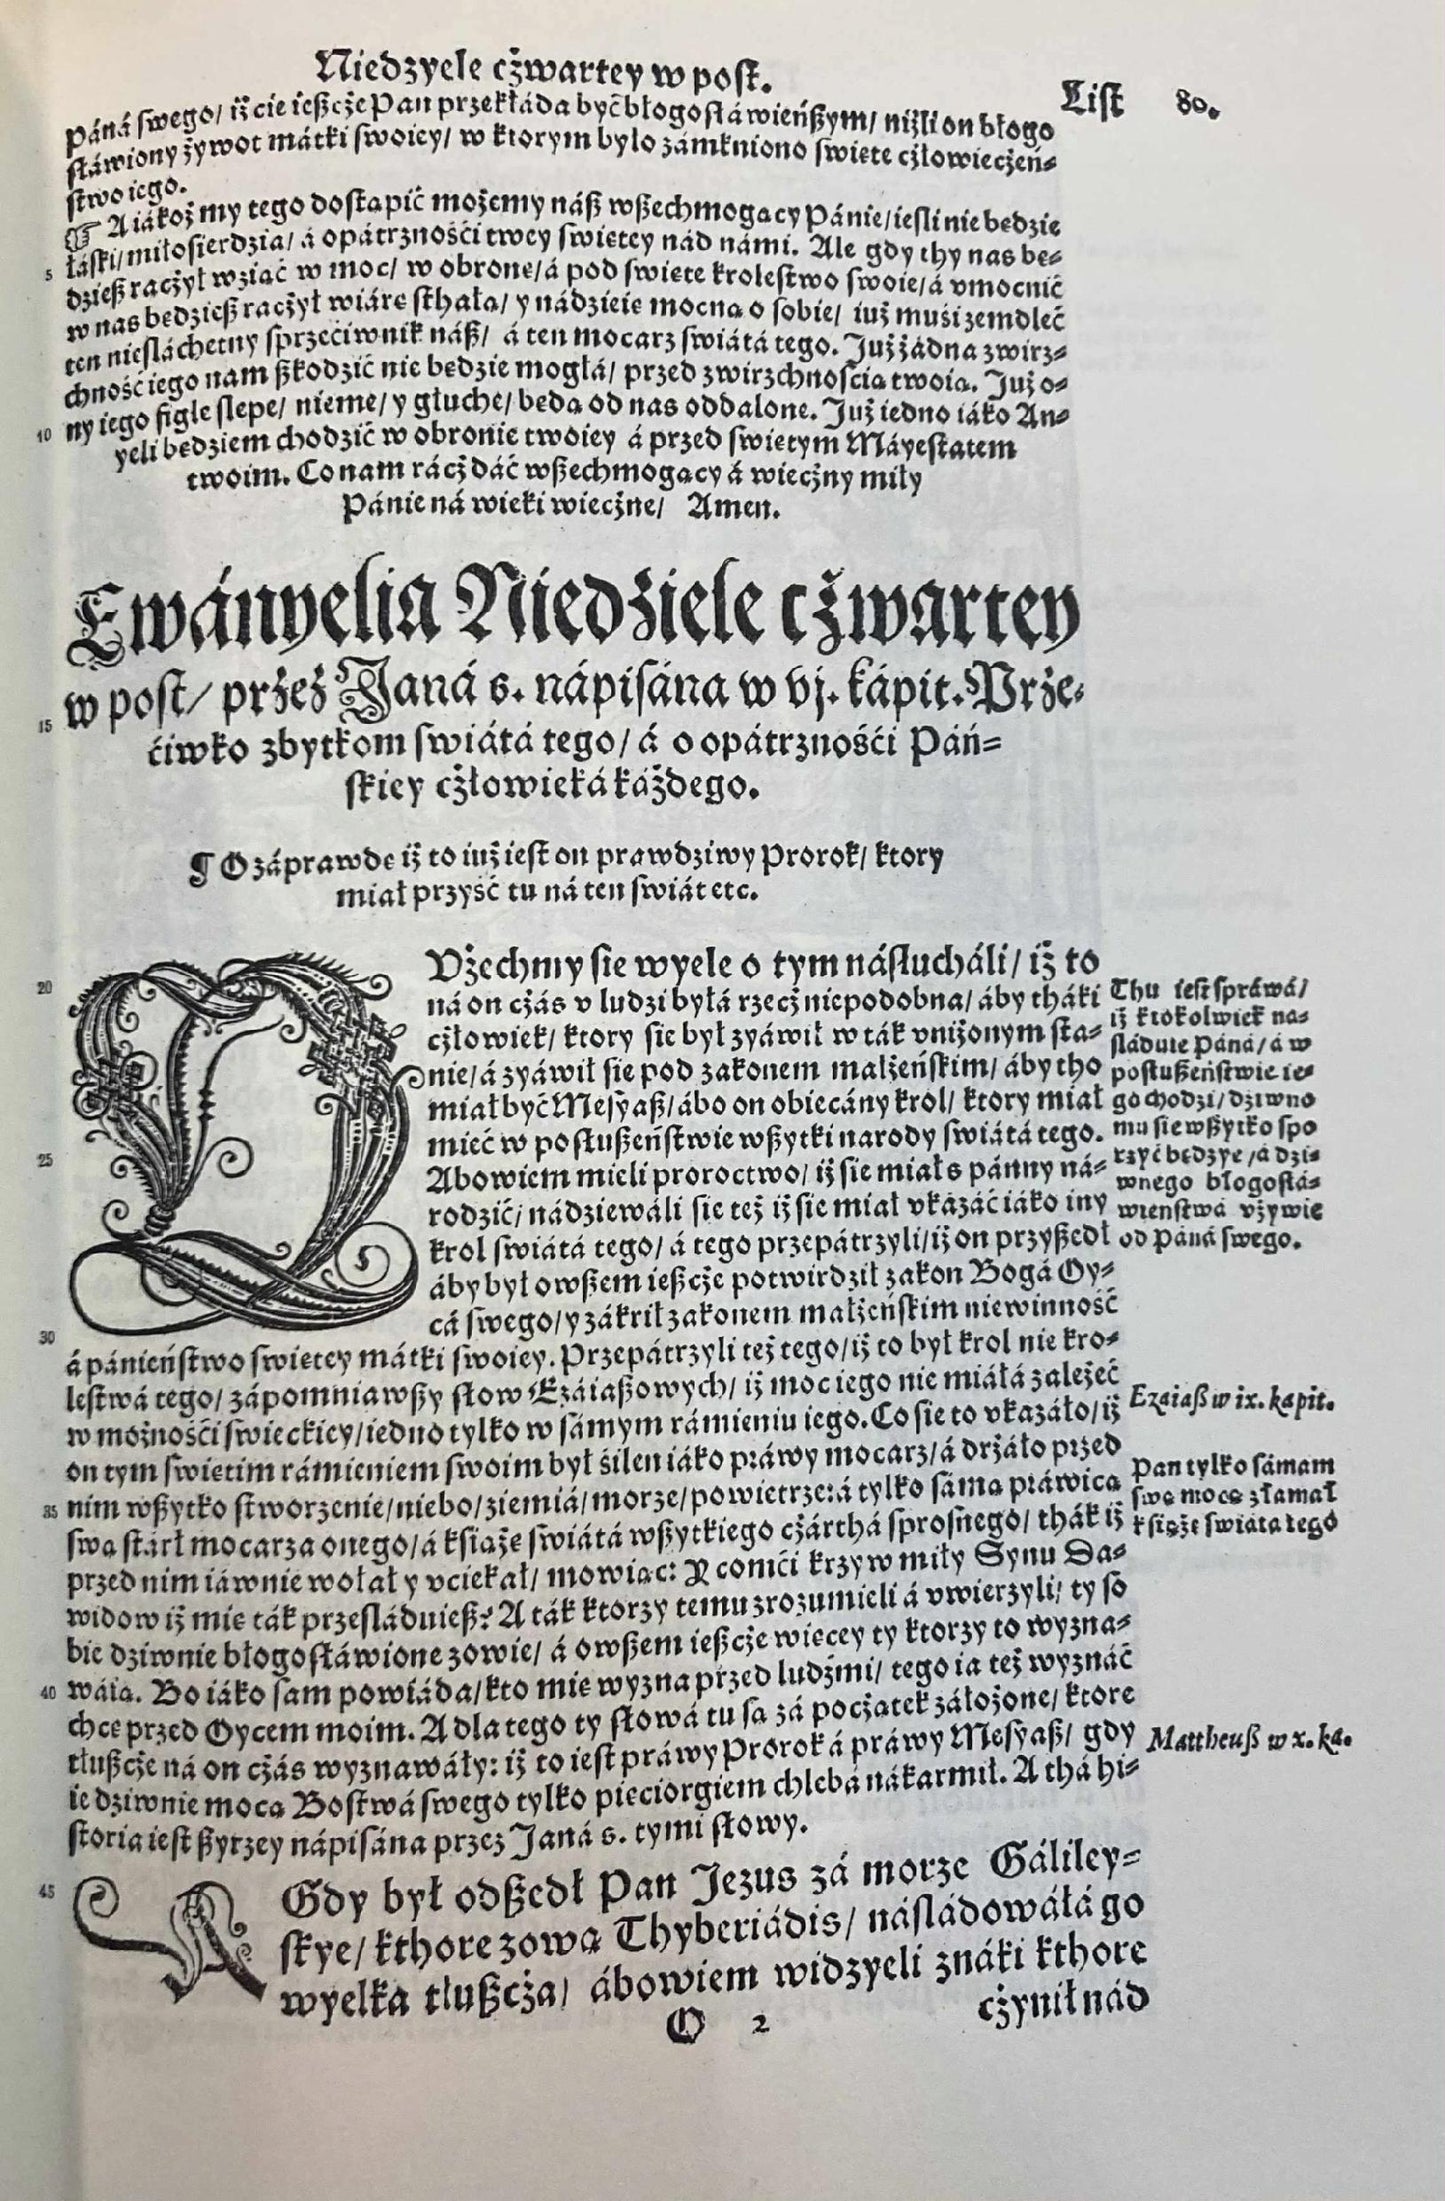 Niedzyele cżwartey w post.
List 80.
páná swego/ iż cie ießcże Pan przekłáda być błogosłáwieńßym/ niżli on błogo
słáwiony żywot mátki swoiey/ w ktorym było zámkniono swiete człowiecżeń⸗
stwo iego.
☞ A iákoż my tego dostąpić możemy náß wßechmogący Pánie/ iesli nie bedzie
5
łáski/ miłosierdzia/ á opátrznośći twey swietey nád námi. Ale gdy thy nas be⸗
dzieß racżył wziąć w moc/ w obronę/ á pod swiete krolestwo swoie/ á vmocnić
w nas bedzieß racżył wiárę sthałą/ y nádzieię mocną o sobie/ iuż muśi zemdleć
ten niesláchetny sprzećiwnik náß/ á ten mocarz swiátá tego. Już żadna zwirz⸗
chność iego nam ßkodzić nie bedzie mogłá/ przed zwirzchnoscią twoią. Już o⸗
10
ny iego figle slepe/ nieme/ y głuche/ bedą od nas oddalone. Już iedno iáko An⸗
yeli bedziem chodzić w obronie twoiey á przed swietym Máyestatem
twoim. Co nam rácż dáć wßechmogący á wiecżny miły
Pánie ná wieki wiecżne/ Amen.
Ewányelia Niedziele cżwartey
15
w post/ przez Janá s. nápisána w vj. kápit. Prze⸗
ćiwko zbytkom swiátá tego/ á o opátrznośći Páń⸗
skiey cżłowieká káżdego.
¶ O záprawdę iż to iuż iest on prawdziwy Prorok/ ktory
miał przyść tu ná ten swiát etc.
Vżechmy sie wyele o tym násłucháli/ iż to
20
ná on cżás v ludzi byłá rzecż niepodobna/ áby tháki
cżłowiek/ ktory sie był zyáwił w ták vniżonym sta⸗
nie/ á zyáwił sie pod zakonem małżeńskim/ áby tho
miał być Mesyaß/ ábo on obiecány krol/ ktory miał
mieć w posłußeństwie wßytki narody swiátá tego.
25
Abowiem mieli proroctwo/ iż sie miał s pánny ná⸗
rodzić/ nádziewáli sie też iż sie miał vkázáć iáko iny
krol swiátá tego/ á tego przepátrzyli/ iż on przyßedł
áby był owßem ießcże potwirdził zakon Bogá Oy⸗
cá swego/ y zákrił zakonem małżeńskim niewinność
30
á pánieństwo swietey mátki swoiey. Przepátrzyli też tego/ iż to był krol nie kro⸗
lestwá tego/ zápomniawßy słow Ezáiaßowych/ iż moc iego nie miáłá zależeć
w możnośći swieckiey/ iedno tylko w sámym rámieniu iego. Co sie to vkazáło/ iż
on tym swietim rámieniem swoim był śilen iáko práwy mocarz/ á drżáło przed
35
nim wßytko stworzenie/ niebo/ ziemiá/ morze/ powietrze: á tylko sámą práwicą
swą stárł mocarza onego/ á ksiażę swiátá wßytkiego cżárthá sprosnego/ thák iż
przed nim iáwnie wołał y vciekał/ mowiąc: Y comći krzyw miły Synu Da⸗
widow iż mie ták przesláduieß? A ták ktorzy temu zrozumieli á vwierzyli/ ty so
bie dziwnie błogosłáwione zowie/ á owßem ießcże wiecey ty ktorzy to wyzna⸗
40
wáią. Bo iáko sam powiáda/ kto mie wyzna przed ludźmi/ tego ia też wyznáć
chcę przed Oycem moim. A dla tego ty słowá tu są zá pocżątek záłożone/ ktore
tłußcże ná on cżás wyznawáły: iż to iest práwy Prorok á práwy Mesyaß/ gdy
ie dziwnie mocą Bostwá swego tylko pięciorgiem chlebá nákarmił. A thá hi⸗
storia iest ßyrzey nápisána przez Janá s. tymi słowy.
45
A Gdy był odßedł Pan Jezus zá morze Gáliley⸗
skye/ kthore zową Thyberiádis/ násládowáłá go
wyelka tłußcża/ ábowiem widzyeli znáki kthore
O 2
cżynił nád
Thu iest spráwá/
iż ktokolwiek na⸗
sláduie Páná/ á w
posłußeństwie ie⸗
go chodzi/ dziwno
mu sie wßytko spo
rzyć będzye/ á dzi⸗
wnego błogosłá⸗
wieństwá vżywie
od Páná swego.
Ezaiaß w ix. kapit.
Pan tylko sámam
swą mocą złamał
książe swiáta tego
Mattheuß w x. ka.